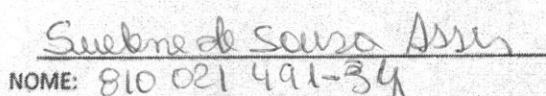 Suelene de Souza Assis
NOME: 810 021 491-34